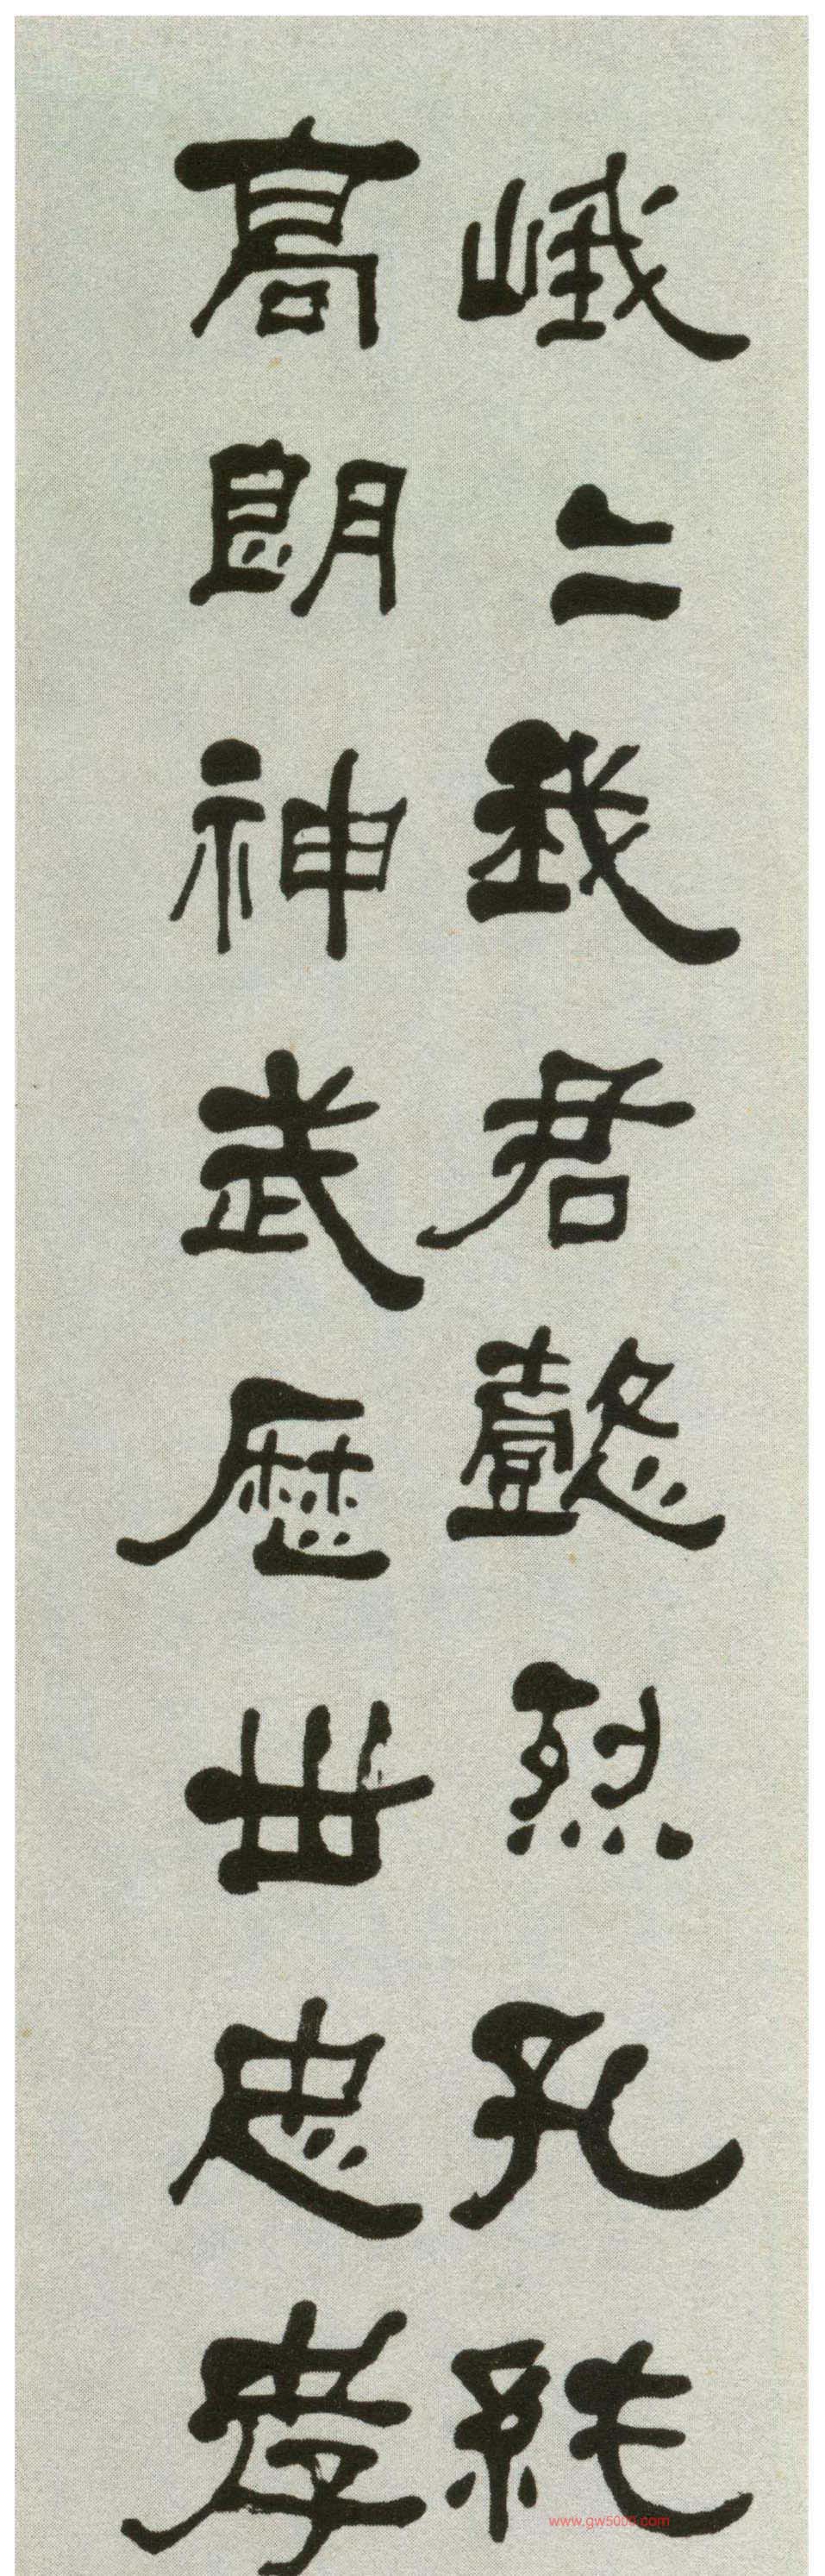 峨〻我君懿烈孔純
高朗神武歷世忠孝
www.gw5000.com